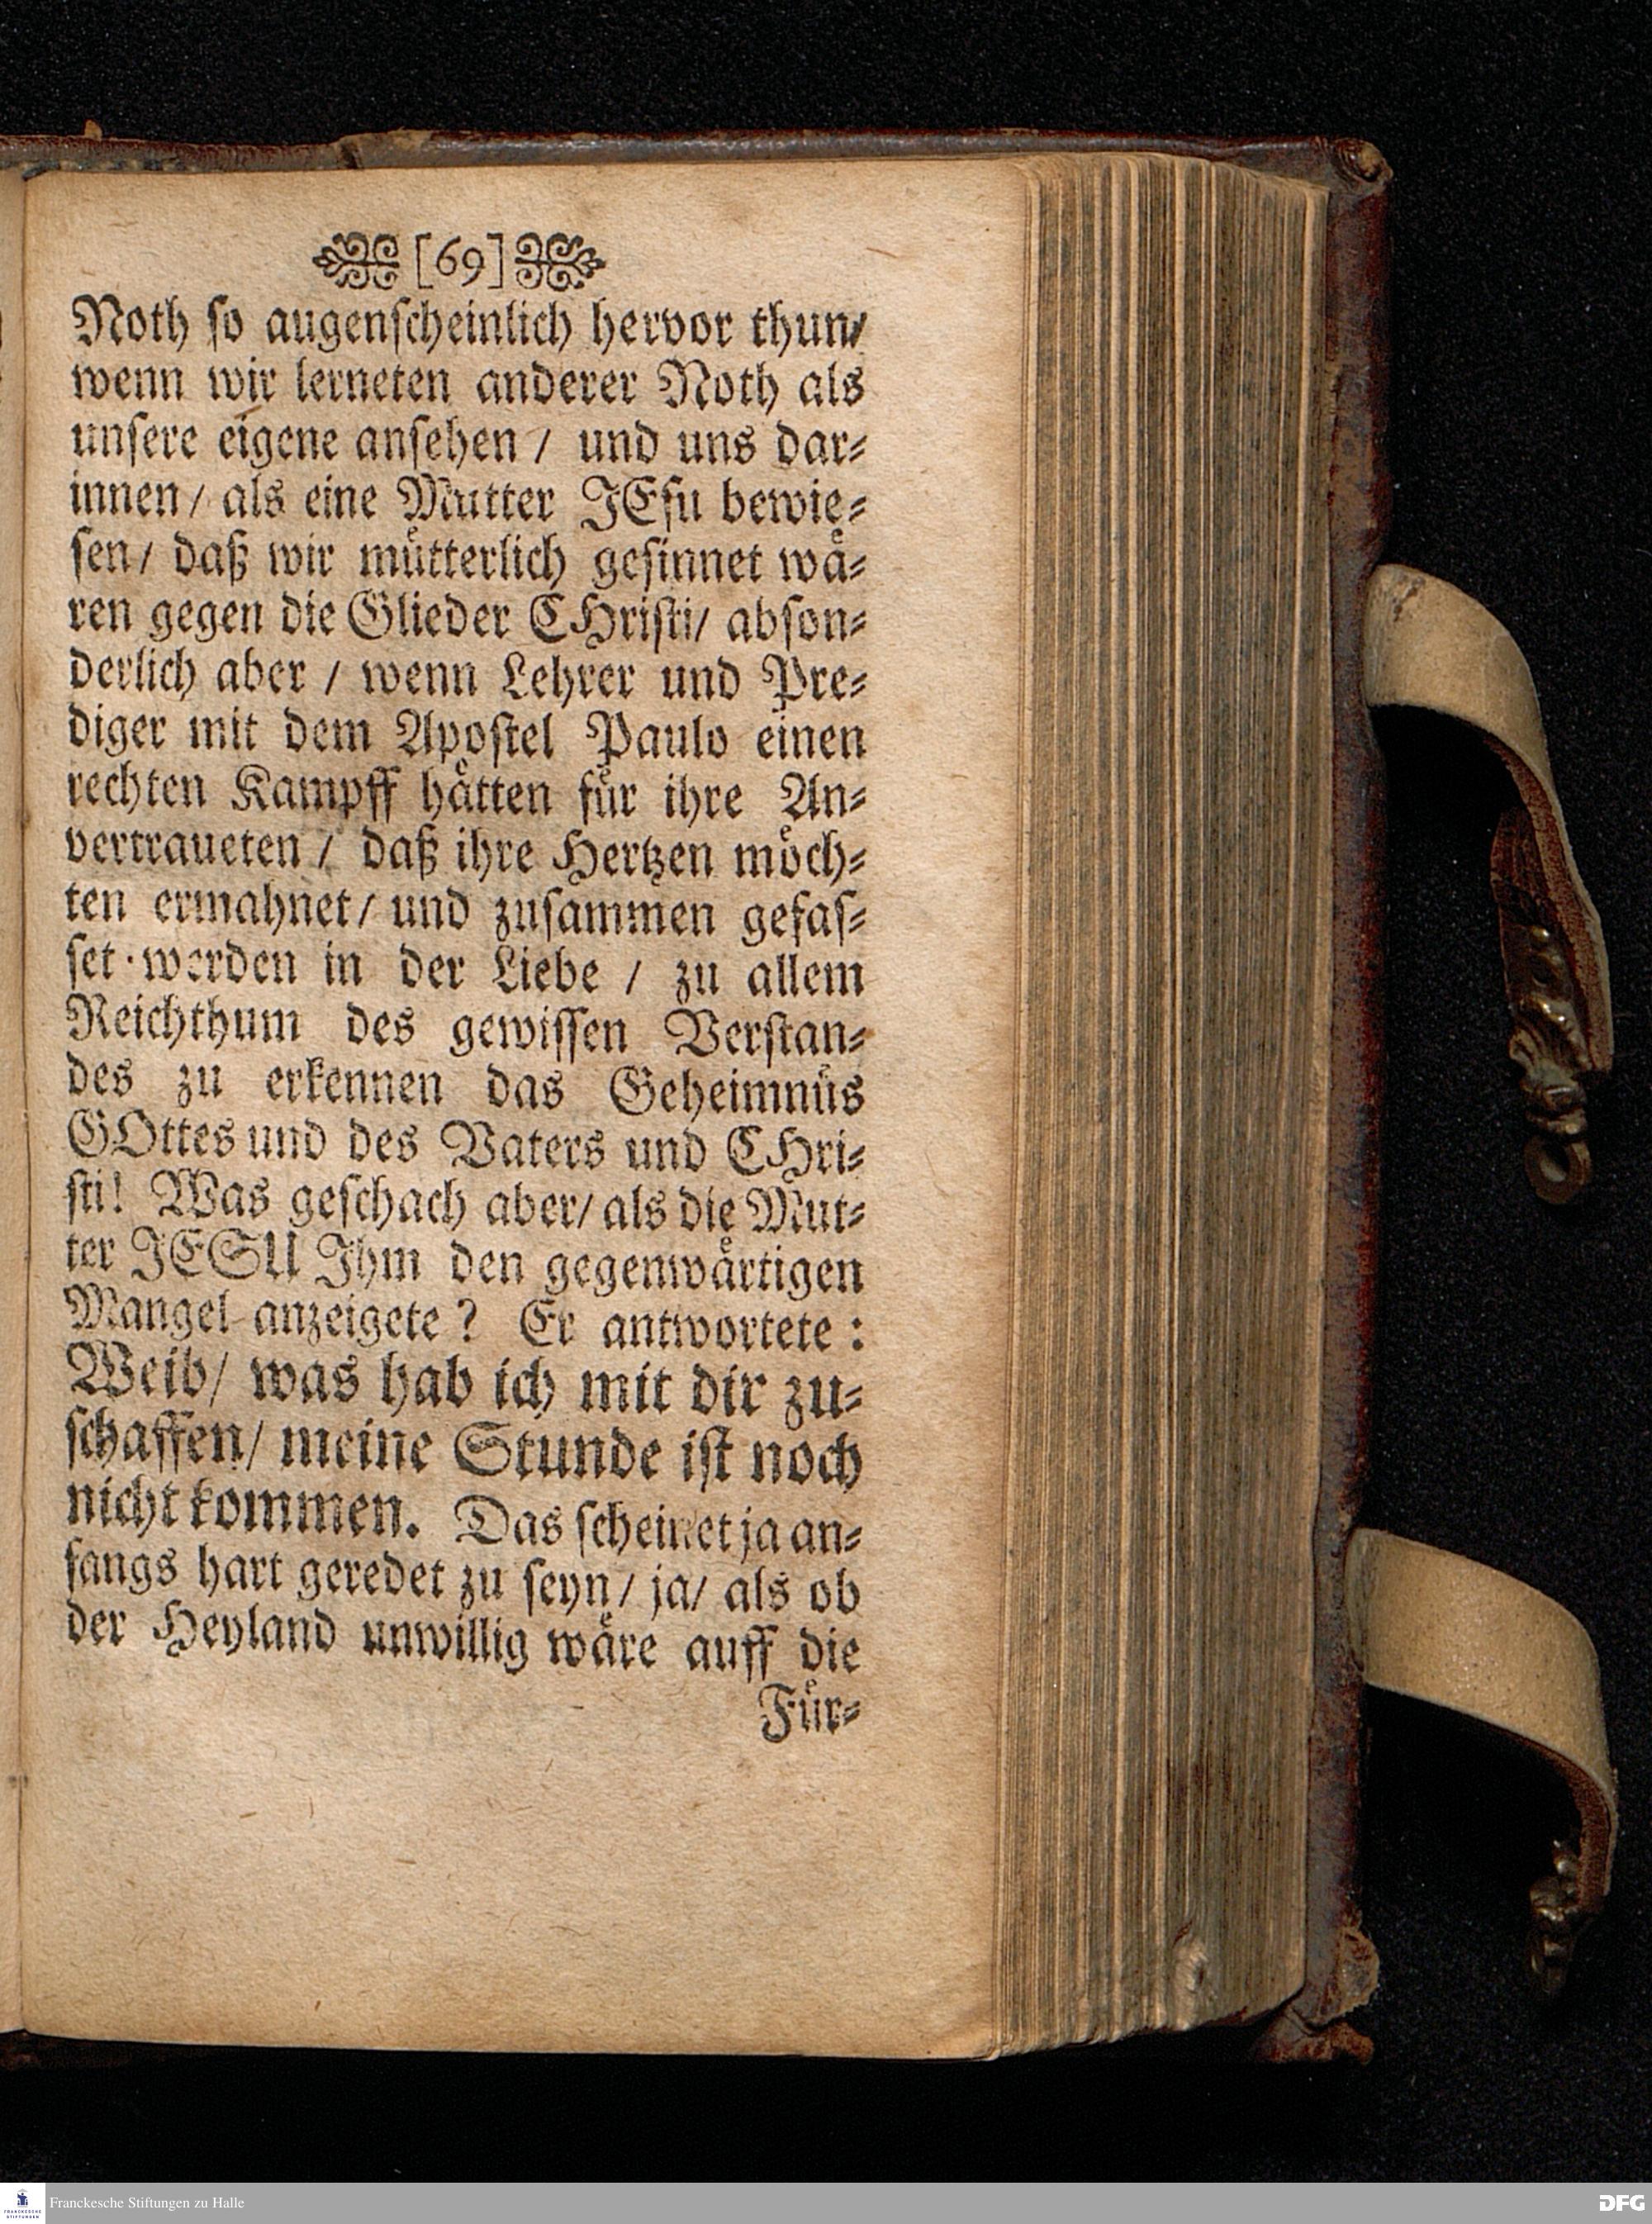 [69]
Noth ſo augenſcheinlich hervor thun/
wenn wir lerneten anderer Noth als
unſere eigene anſehen / und uns dar⸗
innen / als eine Mutter JEſu bewie⸗
ſen / daß wir muͤtterlich geſinnet waͤ⸗
ren gegen die Glieder CHriſti/ abſon⸗
derlich aber / wenn Lehrer und Pre⸗
diger mit dem Apoſtel Paulo einen
rechten Kampff haͤtten fuͤr ihre An⸗
vertraueten / daß ihre Hertzen moͤch⸗
ten ermahnet / und zuſammen gefaſ⸗
ſet werden in der Liebe / zu allem
Reichthum des gewiſſen Verſtan⸗
des zu erkennen das Geheimnuͤs
GOttes und des Vaters und CHri⸗
ſti! Was geſchach aber/ als die Mut⸗
ter JESU Jhm den gegenwaͤrtigen
Mangel anzeigete ? Er antwortete :
Weib/ was hab ich mit dir zu⸗
ſchaffen/ meine Stunde iſt noch
nicht kommen. Das ſcheinet ja an⸗
fangs hart geredet zu ſeyn / ja/ als ob
der Heyland unwillig waͤre auff die
Fuͤr⸗
FRANCKESCHE
STIFTUNGEN
Franckesche Stiftungen zu Halle
DFG